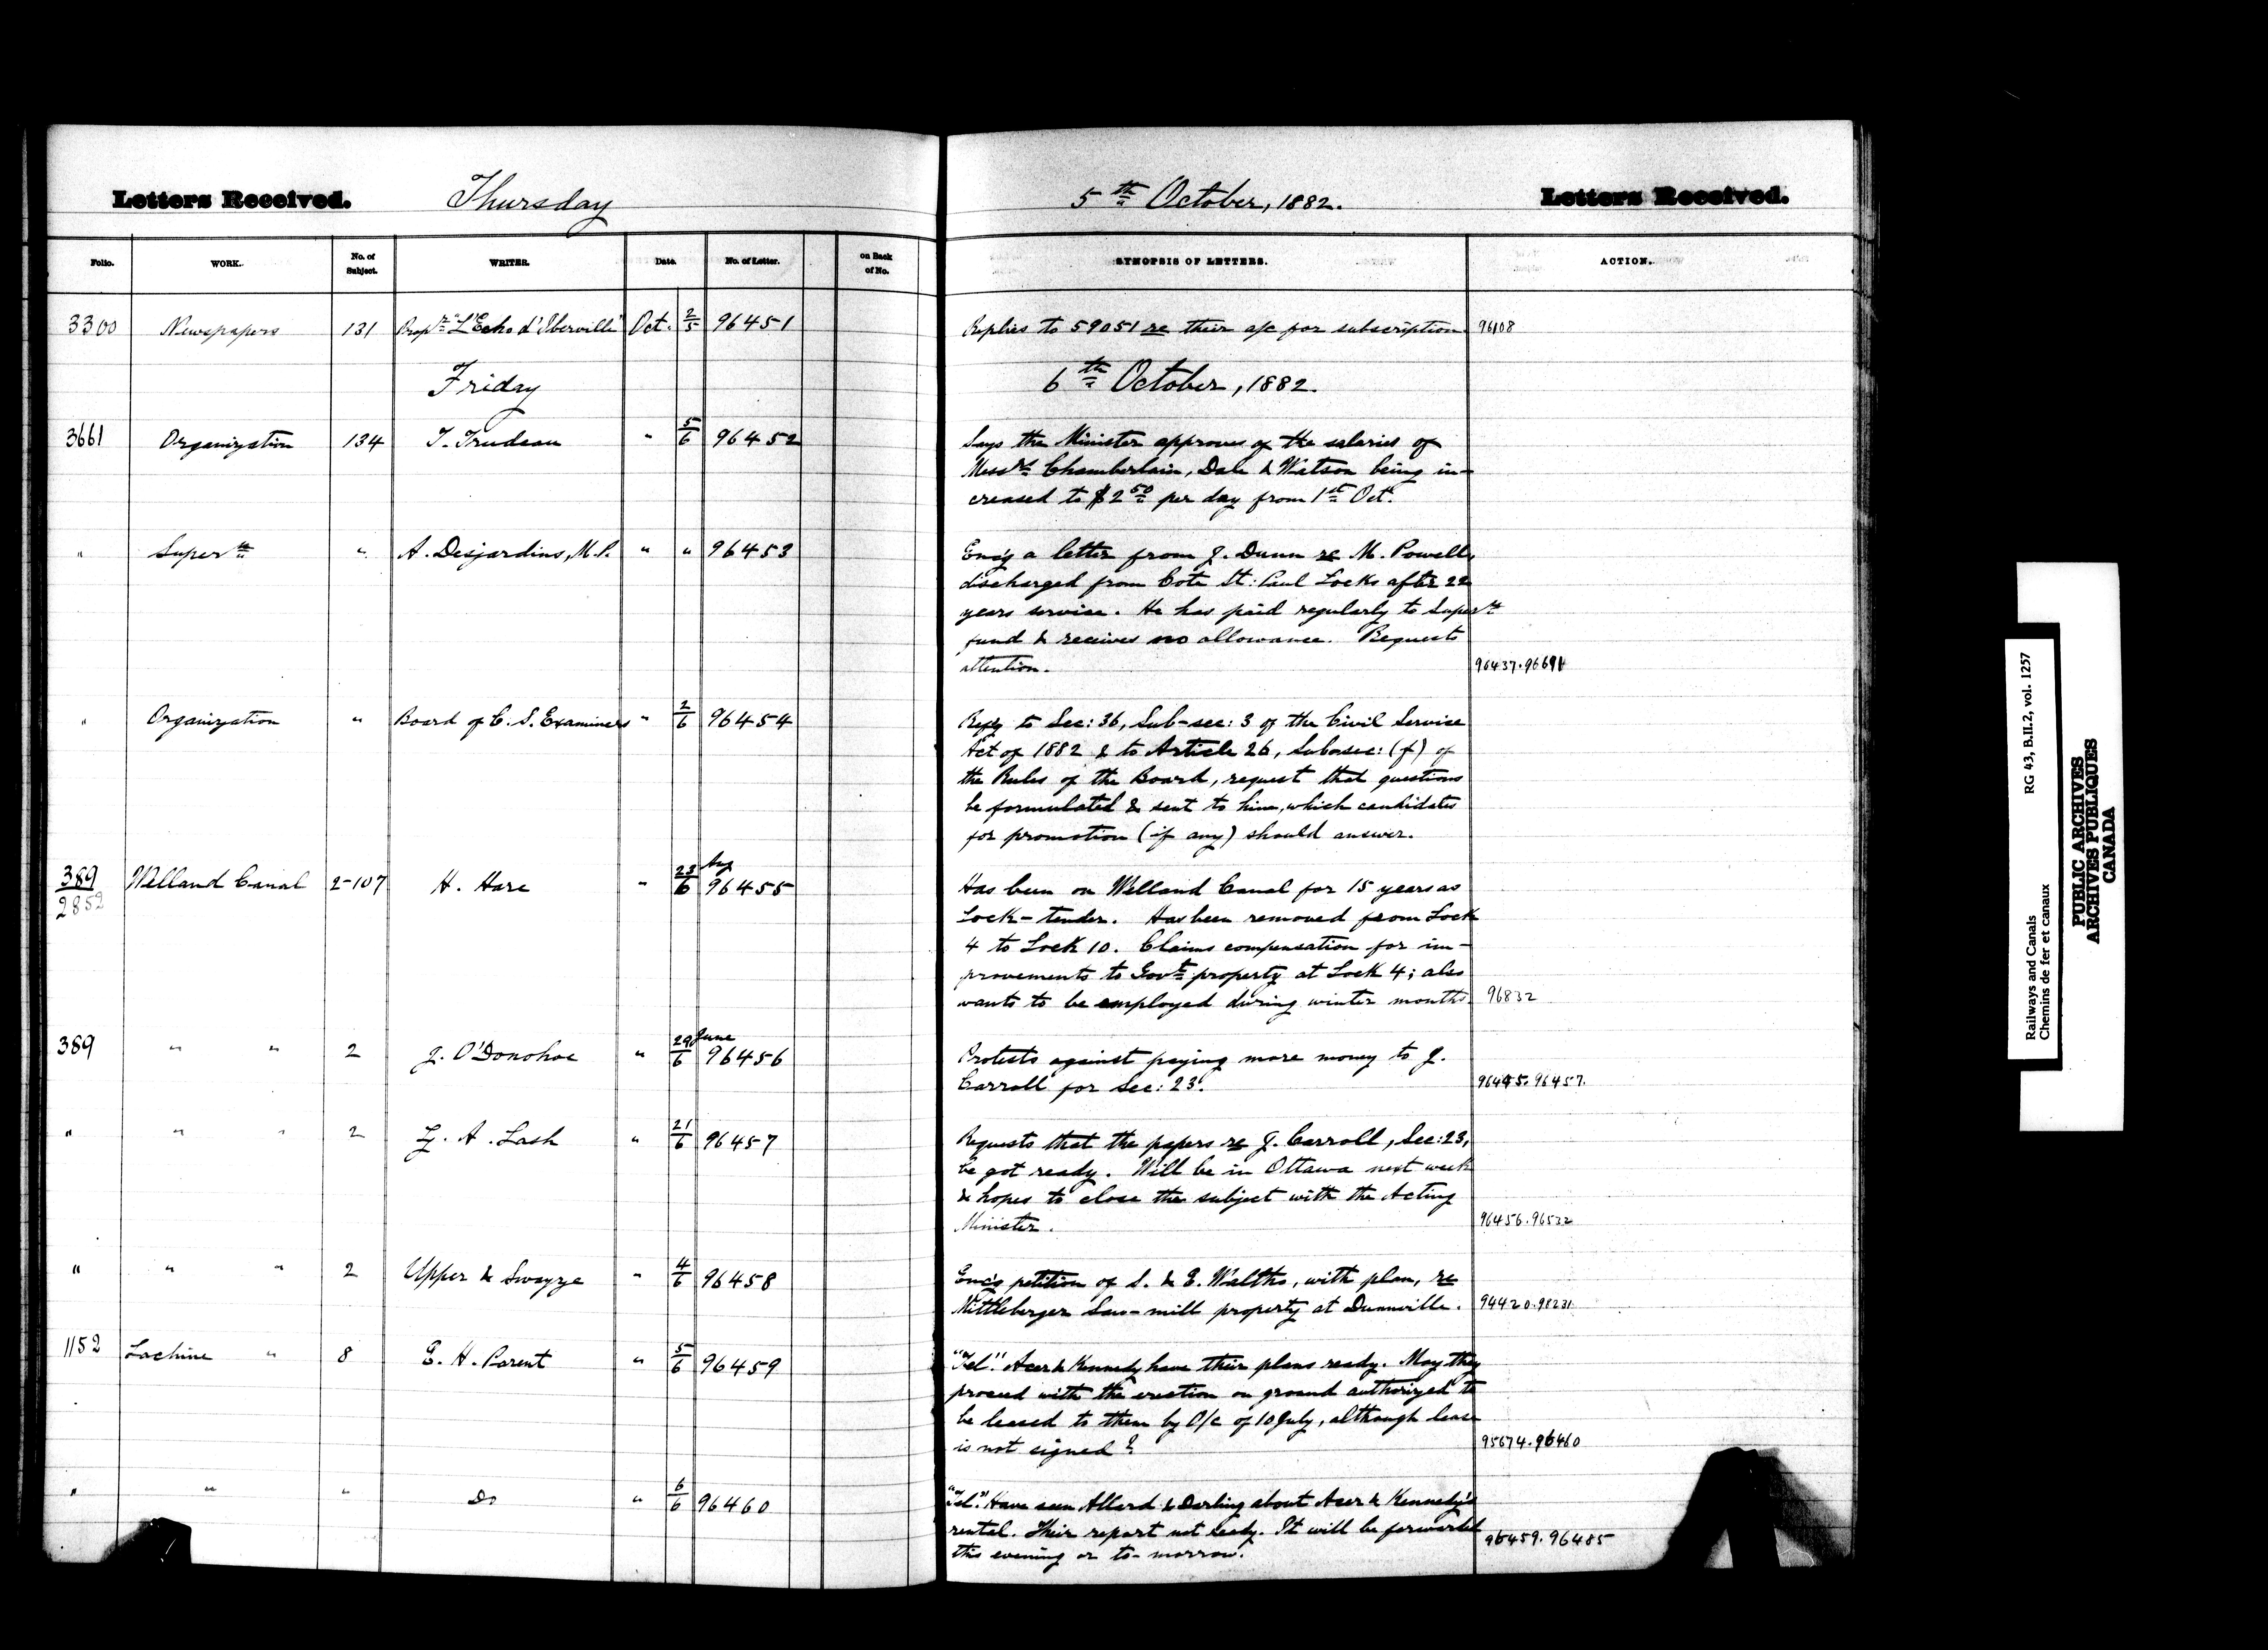 Letters Received. Thursday 5th October, 1882. Letters Received.
Folio. WORK. No. of Subject. WRITER. Date. No. of Letter. on Back of No. SYNOPSIS OF LETTERS. ACTION.
3300 Newspapers 131 Proprs "L'Echo d'Iberville" Oct. 2/5 96451 Replies to 59051 re their a/c for subscription 96108
Friday 6th October, 1882.
3661 Organization 134 T. Trudeau " 5/6 96452 Says the Minister approves of the salaries of
Messrs Chamberlain, Dale & Watson being in-
creased to $2 50 per day from 1st Oct.
" Superin " A. Desjardins, M.P. " " 96453 Encg a letter from J. Dunn re M. Powell,
discharged from Cote St: Paul Locks after 22
years service. He has paid regularly to Superin
fund & receives no allowance. Requests
attention. 96437.96691
" Organization " Board of C. S. Examiners " 2/6 96454 Refg to Sec: 36, Sub-sec: 3 of the Civil Service
Act of 1882 & to Article 26, Subsec: (f) of
the Rules of the Board, request that questions
be formulated & sent to him, which candidates
for promotion (if any) should answer.
389/2852 Welland Canal 2-107 H. Hare " 23 Aug/6 96455 Has been on Welland Canal for 15 years as
Lock-tender. Has been removed from Lock
4 to Lock 10. Claims compensation for im-
provements to Govt property at Lock 4; also
wants to be employed during winter months. 96832
389 " " 2 J. O'Donohoe " 29 June/6 96456 Protests against paying more money to J.
Carroll for Sec: 23. 96445.96457.
" " " 2 Z. A. Lash " 21/6 96457 Requests that the papers re J. Carroll, Sec: 23,
be got ready. Will be in Ottawa next week
& hopes to close the subject with the Acting
Minister. 96456.96532
" " " 2 Upper & Swayze " 4/6 96458 Encg petition of S. & E. Waltho, with plan, re
Mittleberger Saw-mill property at Dunnville. 94420.98231
1152 Lachine " 8 E. H. Parent " 5/6 96459 "Tel." Acer & Kennedy have their plans ready. May they
proceed with the erection on ground authorized to
be leased to them by O/C of 10 July, although lease
is not signed? 95674.96460
" " " Do " 6/6 96460 "Tel." Have seen Allard & Darling about Acer & Kennedy's
rental. Their report not ready. It will be forwarded
this evening or to-morrow. 96459.96485
Railways and Canals RG 43, B.II.2, vol. 1257
Chemins de fer et canaux
PUBLIC ARCHIVES
ARCHIVES PUBLIQUES
CANADA